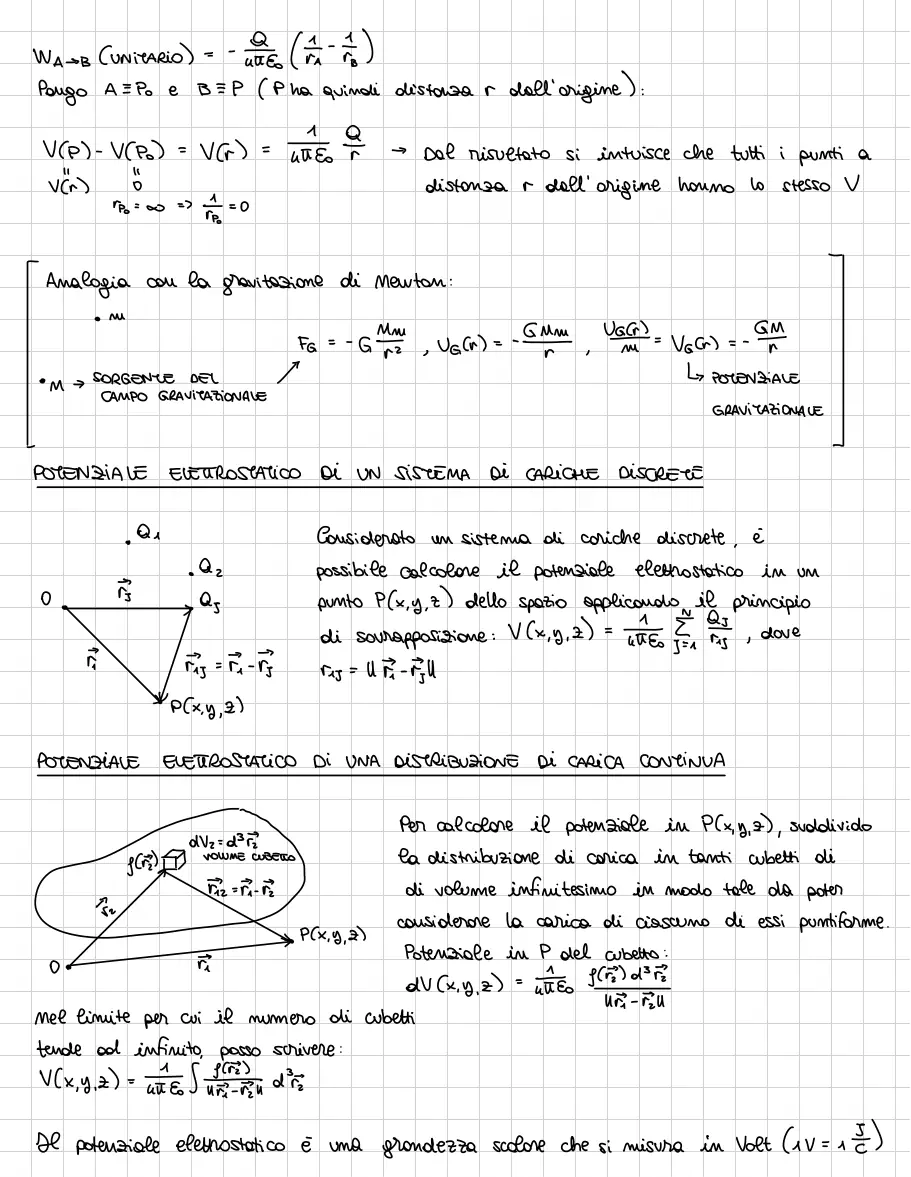 W_{A→B} (UNITARIO) = - \frac{Q}{4πε_0} (\frac{1}{r_A} - \frac{1}{r_B})
Pongo A ≡ P_0 e B ≡ P (P ha quindi distanza r dall'origine):
V(P) - V(P_0) = V(r) = \frac{1}{4πε_0} \frac{Q}{r} → Dal risultato si intuisce che tutti i punti a
V(r) 0 distanza r dall'origine hanno lo stesso V
r_{P_0} = ∞ => \frac{1}{r_{P_0}} = 0
Analogia con la gravitazione di Newton:
• m
F_G = - G \frac{Mm}{r^2} , U_G(r) = - \frac{GMm}{r} , \frac{U_G(r)}{m} = V_G(r) = - \frac{GM}{r}
• M → SORGENTE DEL
CAMPO GRAVITAZIONALE
↳ POTENZIALE
GRAVITAZIONALE
POTENZIALE ELETTROSTATICO DI UN SISTEMA DI CARICHE DISCRETE
Q_1
Q_2
Q_J
O
\vec{r_J}
\vec{r_1}
\vec{r_{1J}} = \vec{r_1} - \vec{r_J}
P(x,y,z)
Considerato un sistema di cariche discrete, è
possibile calcolare il potenziale elettrostatico in un
punto P(x,y,z) dello spazio applicando il principio
di sovrapposizione: V(x,y,z) = \frac{1}{4πε_0} \sum_{J=1}^{N} \frac{Q_J}{r_{1J}} , dove
r_{1J} = || \vec{r_1} - \vec{r_J} ||
POTENZIALE ELETTROSTATICO DI UNA DISTRIBUZIONE DI CARICA CONTINUA
dV_2 = d^3\vec{r_2}
VOLUME CUBETTO
ρ(\vec{r_2})
\vec{r_{12}} = \vec{r_1} - \vec{r_2}
\vec{r_2}
P(x,y,z)
O
\vec{r_1}
Per calcolare il potenziale in P(x,y,z), suddivido
la distribuzione di carica in tanti cubetti di
di volume infinitesimo in modo tale da poter
considerare la carica di ciascuno di essi puntiforme.
Potenziale in P del cubetto:
dV(x,y,z) = \frac{1}{4πε_0} \frac{ρ(\vec{r_2}) d^3\vec{r_2}}{||\vec{r_1} - \vec{r_2}||}
Nel limite per cui il numero di cubetti
tende ad infinito, posso scrivere:
V(x,y,z) = \frac{1}{4πε_0} ∫ \frac{ρ(\vec{r_2})}{||\vec{r_1} - \vec{r_2}||} d^3\vec{r_2}
Il potenziale elettrostatico è una grandezza scalare che si misura in Volt (1V = 1 \frac{J}{C})